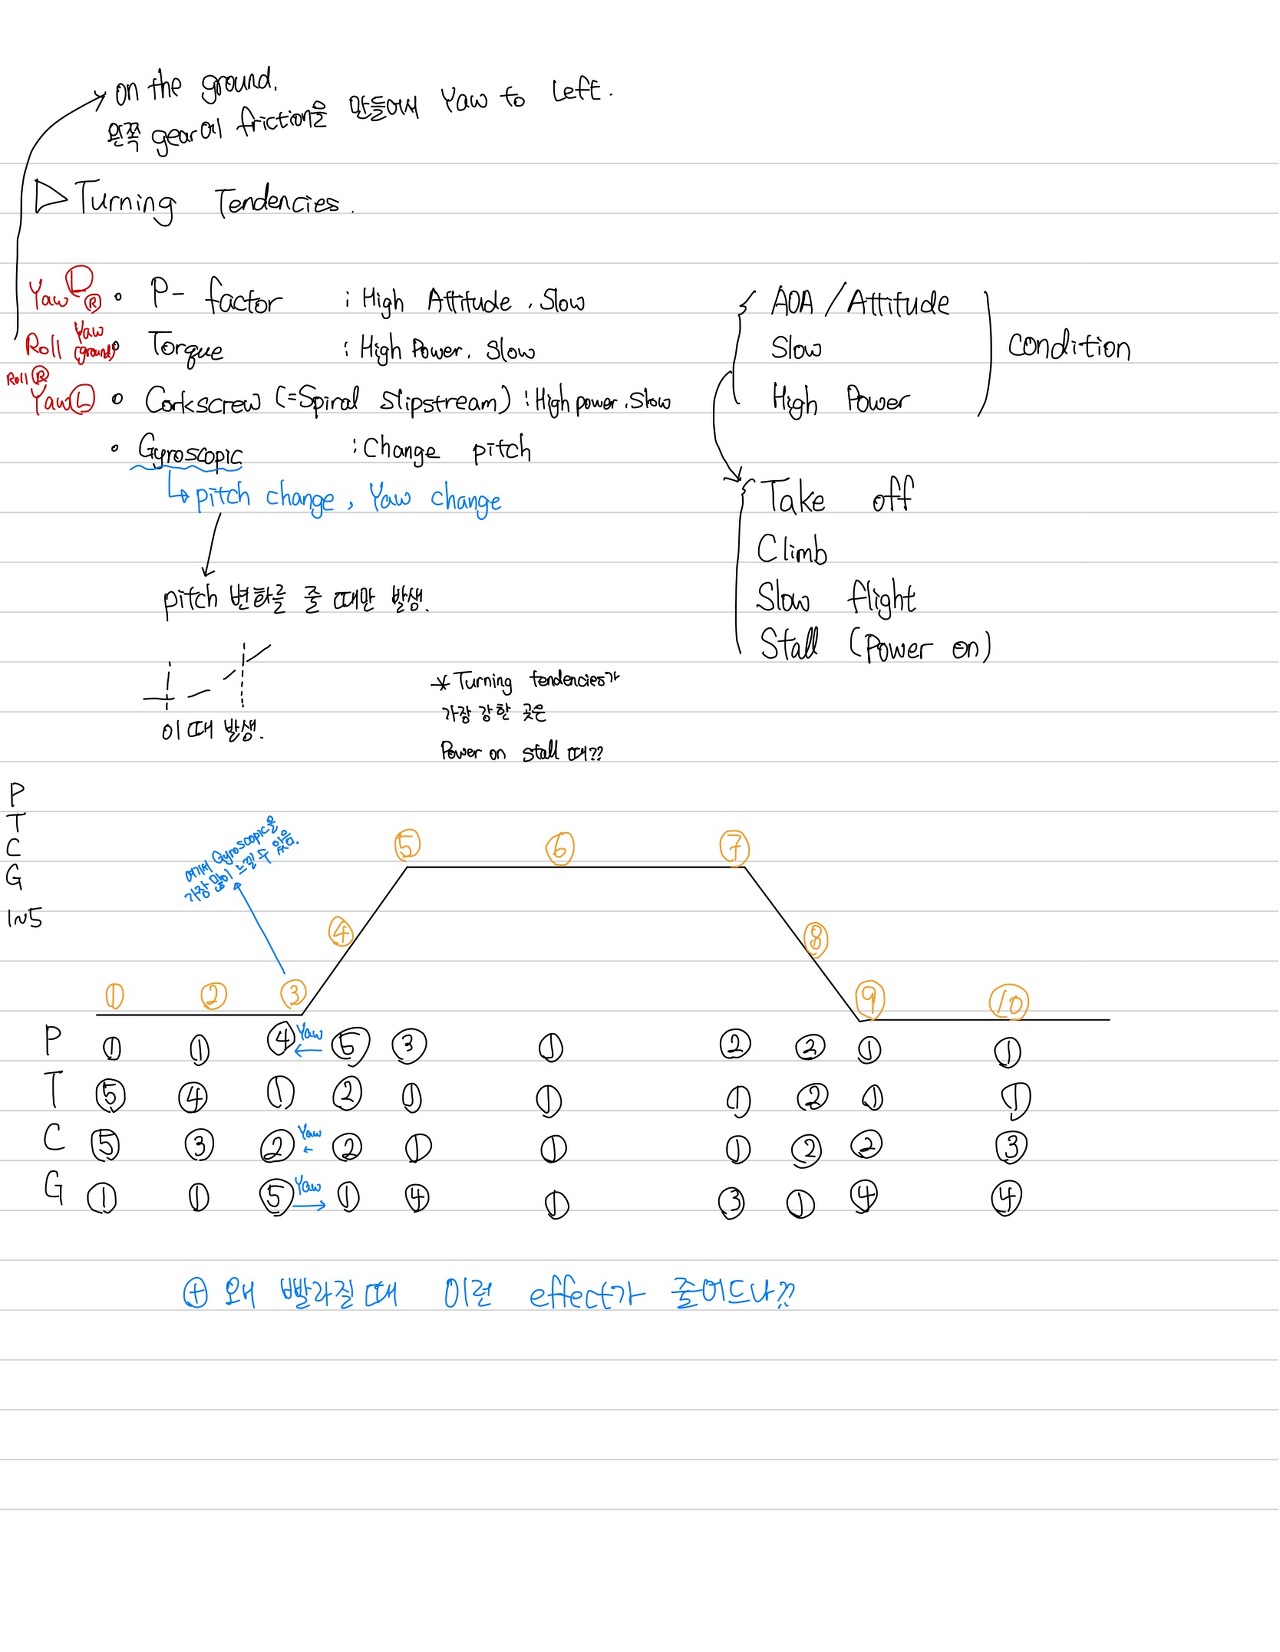 on the ground.
왼쪽 gear에 friction을 만들어서 Yaw to Left.
▷ Turning Tendencies.
Yaw Ⓛ Ⓡ • P- factor : High Attitude, Slow
Roll Yaw (ground) • Torque : High Power, Slow
Roll Ⓡ
Yaw Ⓛ • Corkscrew (=Spiral Slipstream) : High power, Slow
• Gyroscopic : Change pitch
↳ pitch change, Yaw change
pitch 변화를 줄 때만 발생.
이때 발생.
AOA / Attitude
Slow
High Power
condition
Take off
Climb
Slow flight
Stall (Power on)
* Turning tendencies가
가장 강한 곳은
Power on stall 때??
P
T
C
G
1~5
여기서 Gyroscopic을
가장 많이 느낄 수 있음.
① ② ③ ④ ⑤ ⑥ ⑦ ⑧ ⑨ ⑩
P ① ① ④ Yaw ← ⑤ ③ ① ② ② ① ①
T ⑤ ④ ① ② ① ① ① ② ① ①
C ⑤ ③ ② Yaw ← ② ① ① ① ② ② ③
G ① ① ⑤ Yaw → ① ④ ① ③ ① ④ ④
⊕ 왜 빨라질때 이런 effect가 줄어드나??